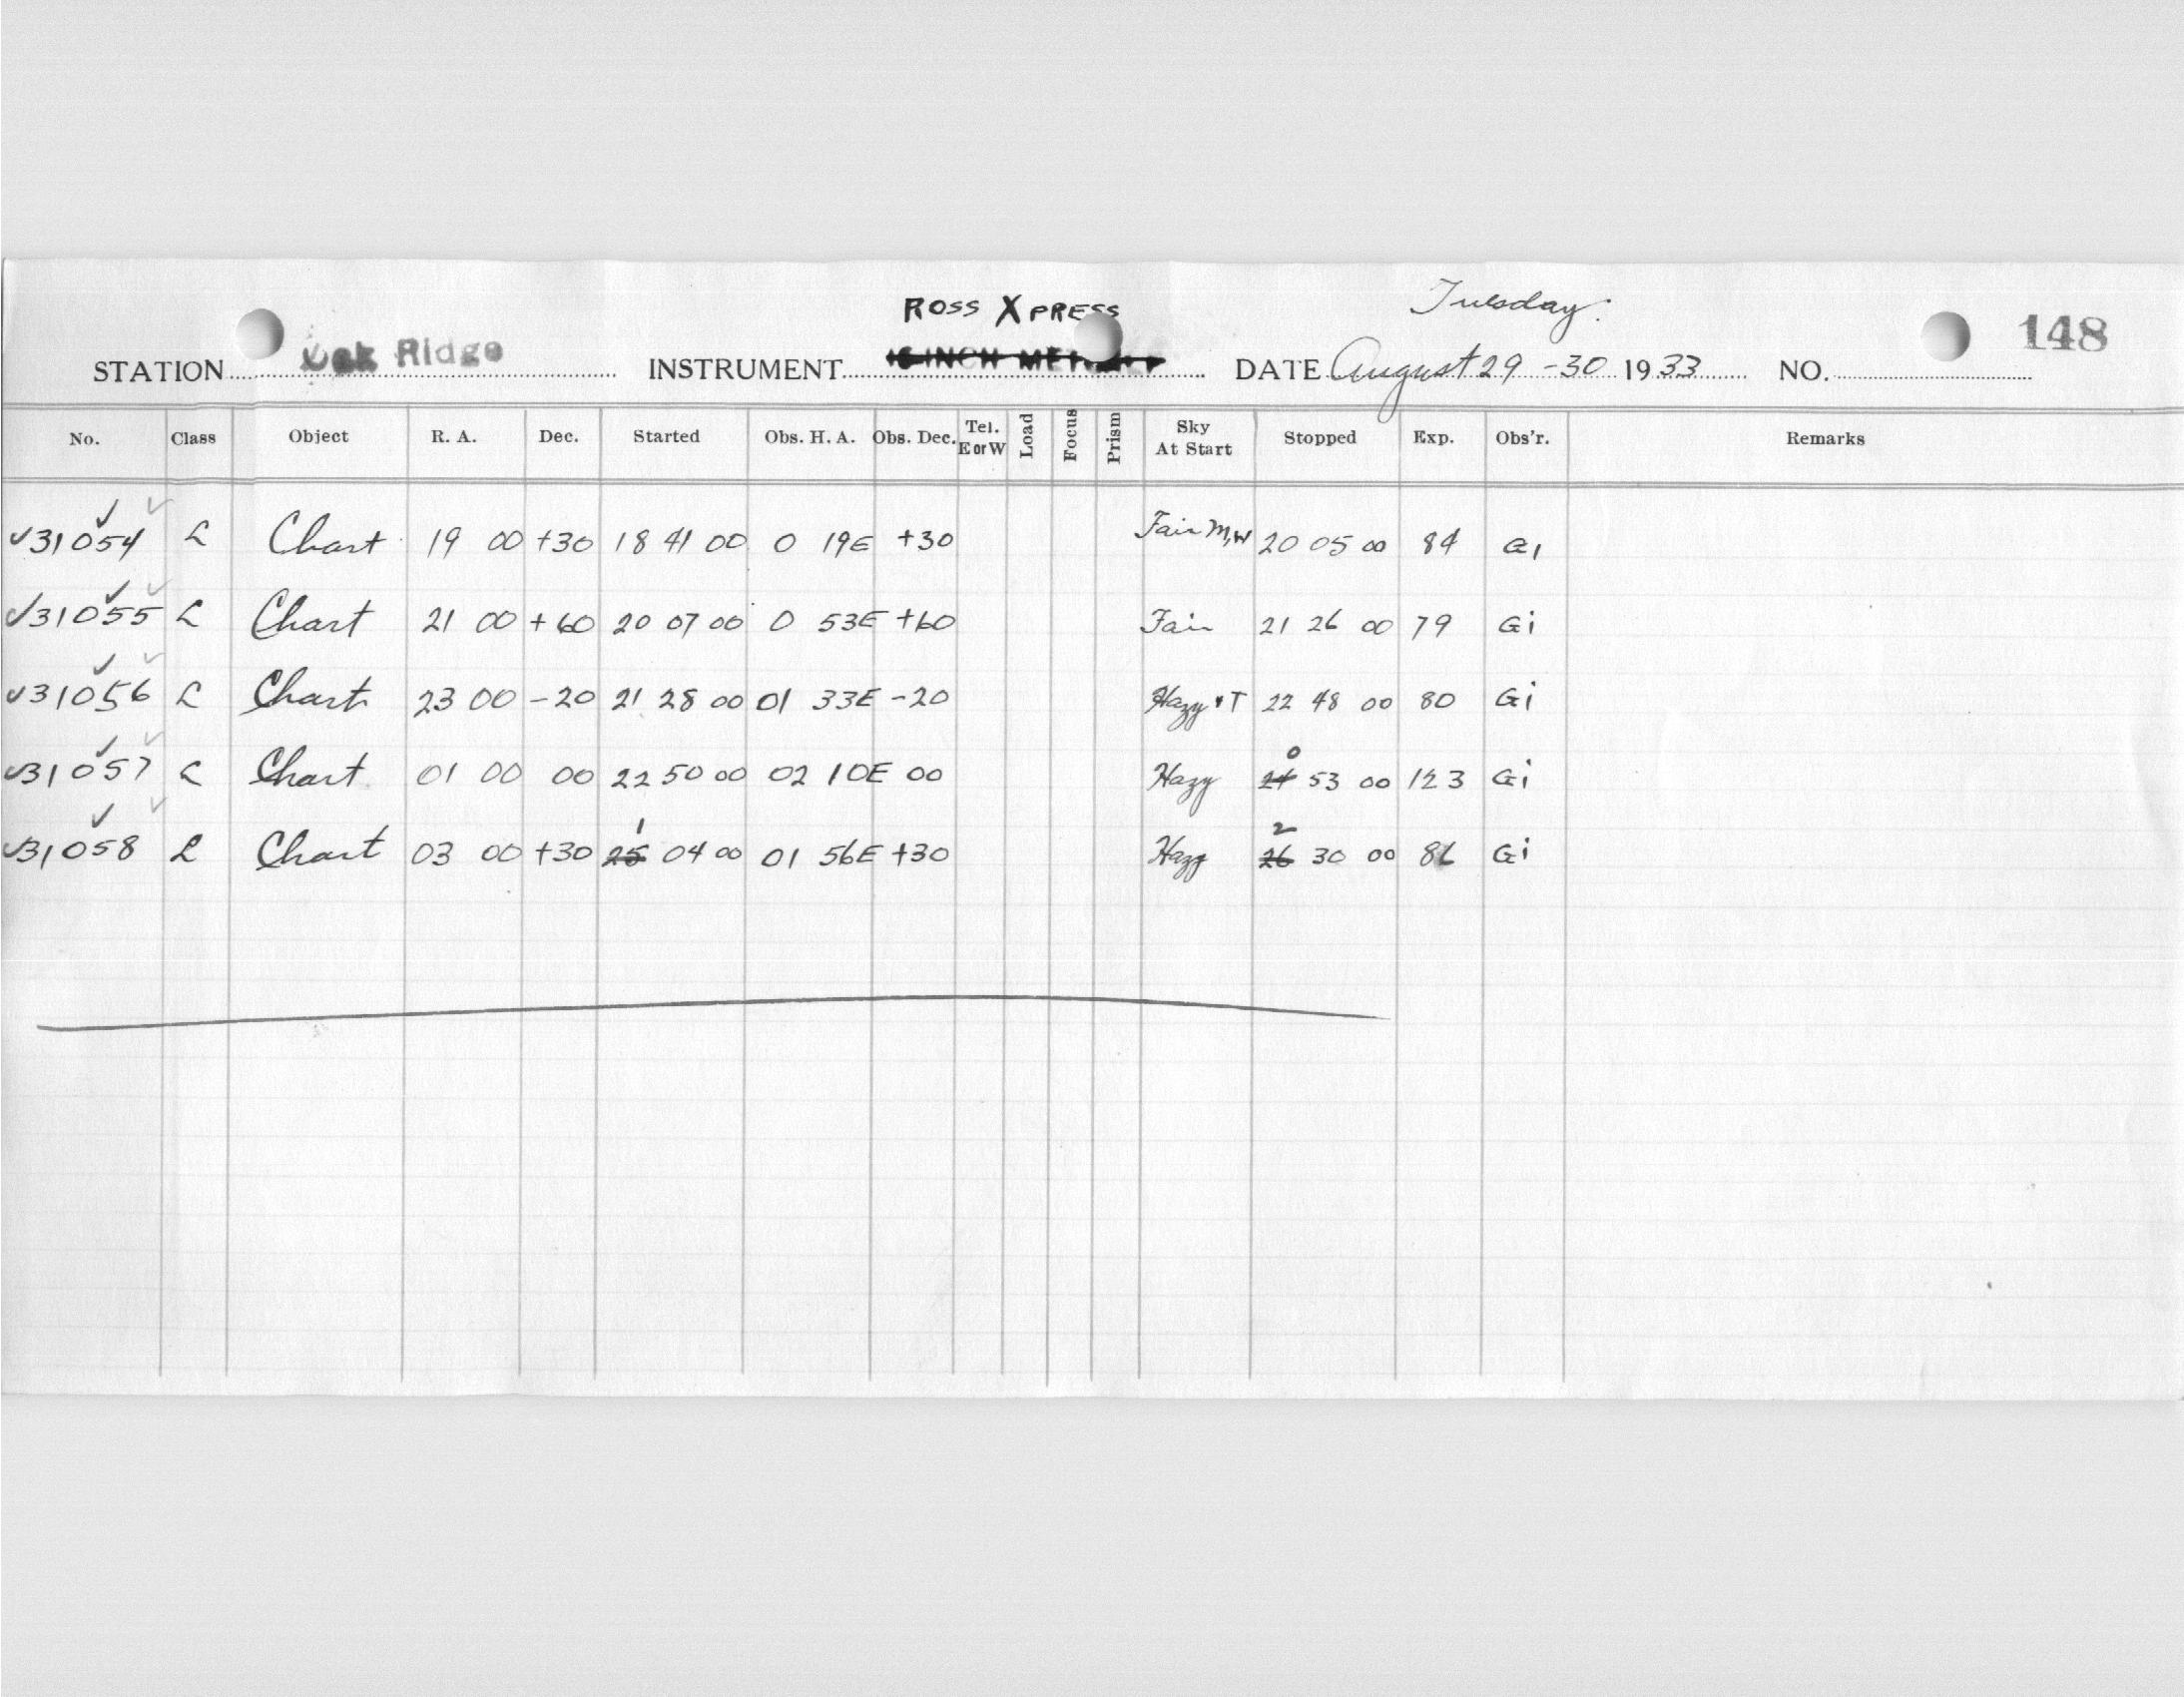 ROSS XPRESS Tuesday.
STATION Oak Ridge INSTRUMENT 16 INCH DATE August 29-30 1933 NO. 148
No. Class Object R. A. Dec. Started Obs. H. A. Obs. Dec. Tel. E or W Load Focus Prism Sky At Start Stopped Exp. Obs'r. Remarks
31054 L Chart 19 00 +30 18 41 00 0 19E +30 Fair M,W 20 05 00 84 Gi
31055 L Chart 21 00 +60 20 07 00 0 53E +60 Fair 21 26 00 79 Gi
31056 L Chart 23 00 -20 21 28 00 01 33E -20 Hazy + T 22 48 00 80 Gi
31057 L Chart 01 00 00 22 50 00 02 10E 00 Hazy 24 0 53 00 123 Gi
31058 L Chart 03 00 +30 25 1 04 00 01 56E +30 Hazy 26 2 30 00 86 Gi